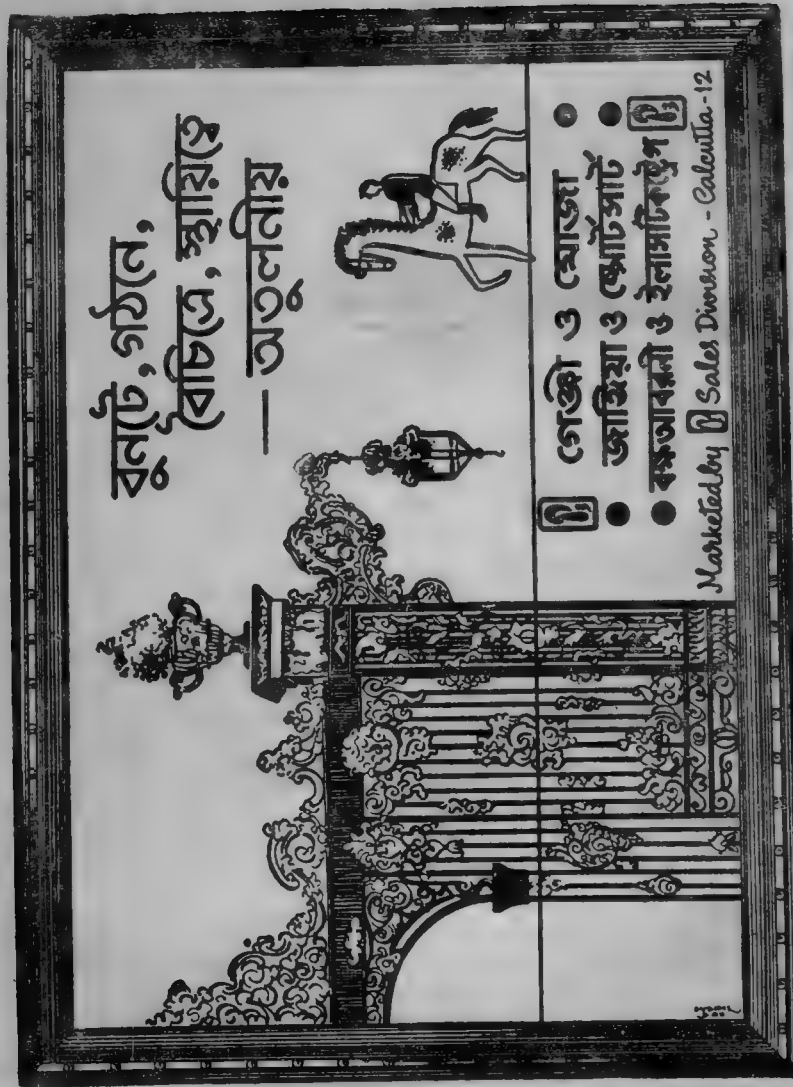 বুনটে, গঠনে,
বৈচিত্রে, স্থায়িত্বে
— অতুলনীয়
গেঞ্জী ও মোজা ●
● জাঙ্গিয়া ও স্পোর্টসার্ট ●
● বক্ষআবরনী ও ইলাসটিকষ্ট্রেপ
Marketed by Sales Division - Calcutta-12